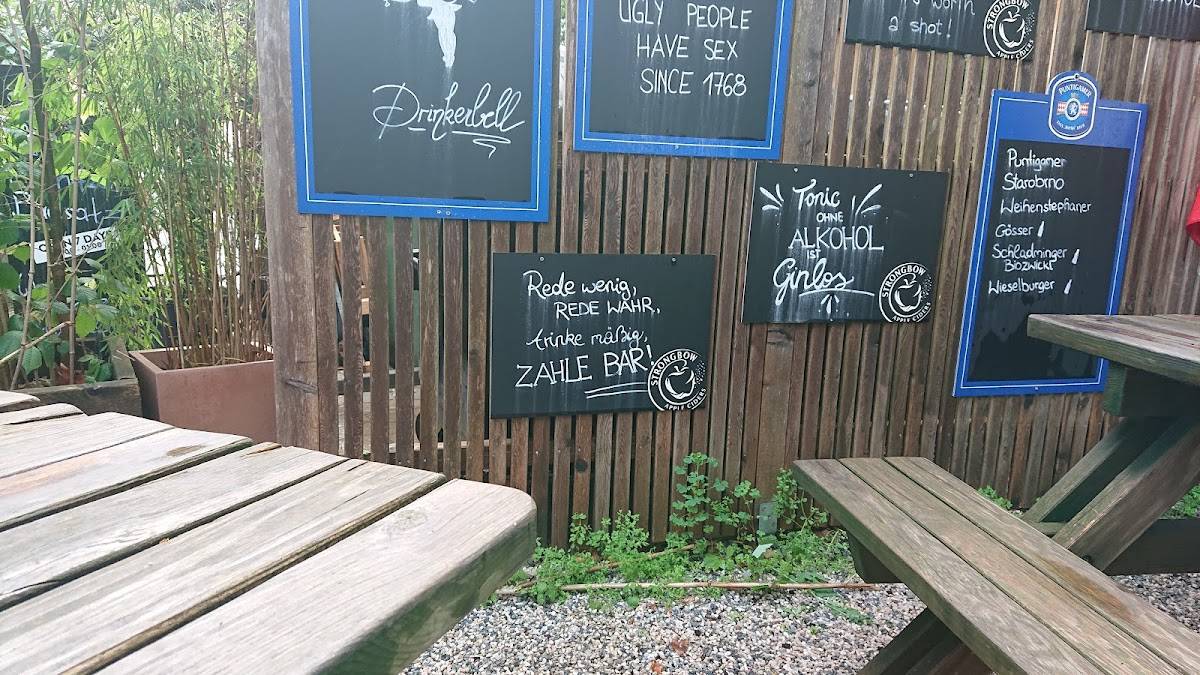 Drinkerbell
UGLY PEOPLE
HAVE SEX
SINCE 1768
WORTH
a shot!
STRONGBOW
APPLE CIDERS
PUNTIGAMER
Puntigamer
Starobrno
Weihenstephaner
Gösser
Schladminger
BIOZWICKL
Wieselburger
Tonic
OHNE
ALKOHOL
IST
Ginlos
STRONGBOW
APPLE CIDERS
Rede wenig,
REDE WAHR,
trinke mäßig,
ZAHLE BAR!
STRONGBOW
APPLE CIDERS
7 DAYS